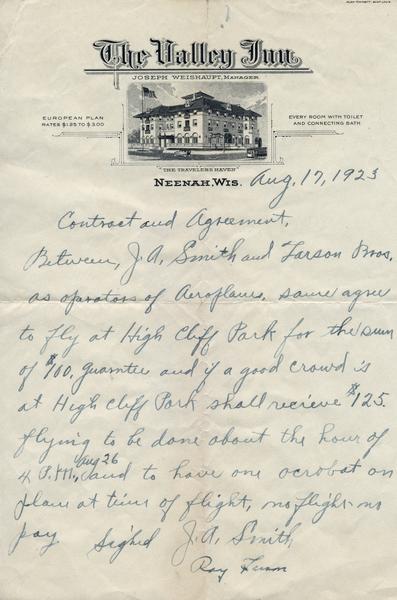 The Valley Inn
JOSEPH WEISHAUPT, MANAGER
EUROPEAN PLAN
RATES $1.25 TO $3.00
EVERY ROOM WITH TOILET
AND CONNECTING BATH
"THE TRAVELERS HAVEN"
NEENAH, WIS. Aug, 17, 1923
Contract and Agreement,
Between, J. A. Smith and Larson Bros.
as oparators of Aeroplane. same agree
to fly at High Cliff Park for the sum
of $100, guarntee and if a good crowd is
at High Cliff Park shall recieve $125.
flying to be done about the hour of
4 P.M., Aug 26 and to have one acrobat on
plane at time of flight, no flight no
pay Signed J. A. Smith
Roy